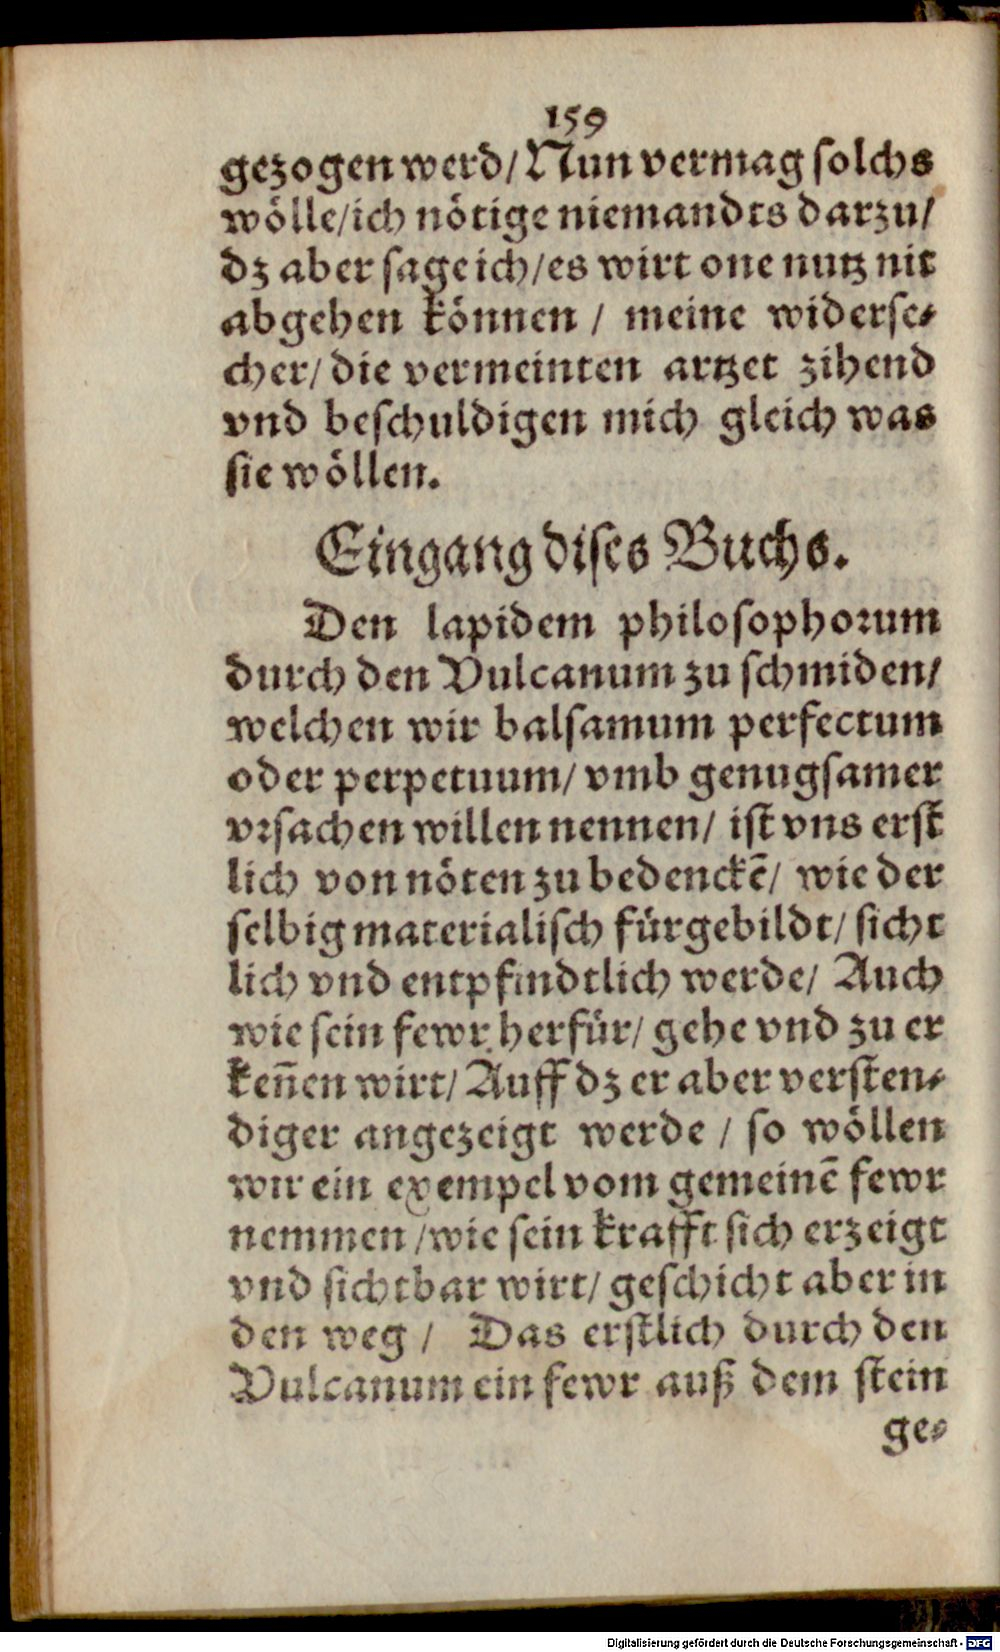 159
gezogen werd/Nun vermag solchs
wölle/ich nötige niemandts darzu/
dz aber sage ich/es wirt one nutz nit
abgehen können / meine widerse⸗
cher/die vermeinten artzet zihend
vnd beschuldigen mich gleich was
sie wöllen.
Eingang dises Buchs.
Den lapidem philosophorum
durch den Vulcanum zu schmiden/
welchen wir balsamum perfectum
oder perpetuum/vmb genugsamer
vrsachen willen nennen/ ist vns erst
lich von nöten zu bedenckē/ wie der
selbig materialisch fürgebildt/sicht
lich vnd entpfindtlich werde/ Auch
wie sein fewr herfür/gehe vnd zu er
keñen wirt/Auff dz er aber versten⸗
diger angezeigt werde / so wöllen
wir ein exempel vom gemeinē fewr
nemmen /wie sein krafft sich erzeigt
vnd sichtbar wirt/geschicht aber in
den weg / Das erstlich durch den
Vulcanum ein fewr auß dem stein
ge⸗
Digitalisierung gefördert durch die Deutsche Forschungsgemeinschaft - DFG